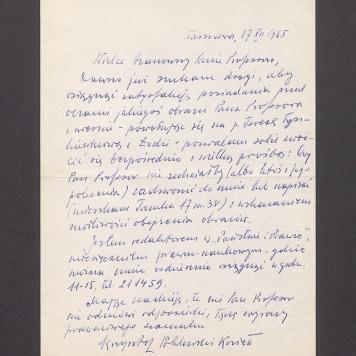 Warszawa, 17 XII 1965
Wielce Szanowny Panie Profesorze,
Dawno już szukam drogi, aby
osiągnąć satysfakcję posiadania przed
oczami jakiegoś obrazu Pana Profesora
i wreszcie - powołując się na p. Teresę Tysz-
kiewiczową z Łodzi - pozwalam sobie zwró-
cić się bezpośrednio z wielką prośbą: czy
Pan Profesor nie zechciałby (albo ktoś z Jego
polecenia) zadzwonić do mnie lub napisać
(mieszkam Tamka 17 m. 38) z wskazaniem
możliwości obejrzenia obrazów.
Jestem redaktorem w "Państwie i Prawie",
miesięczniku prawno-naukowym, gdzie
można mnie codziennie osiągnąć w godz.
11-15, tel. 211459.
Mając nadzieję, że mi Pan Profesor
nie odmówi odpowiedzi, łączę wyrazy
prawdziwego szacunku
Krzysztof